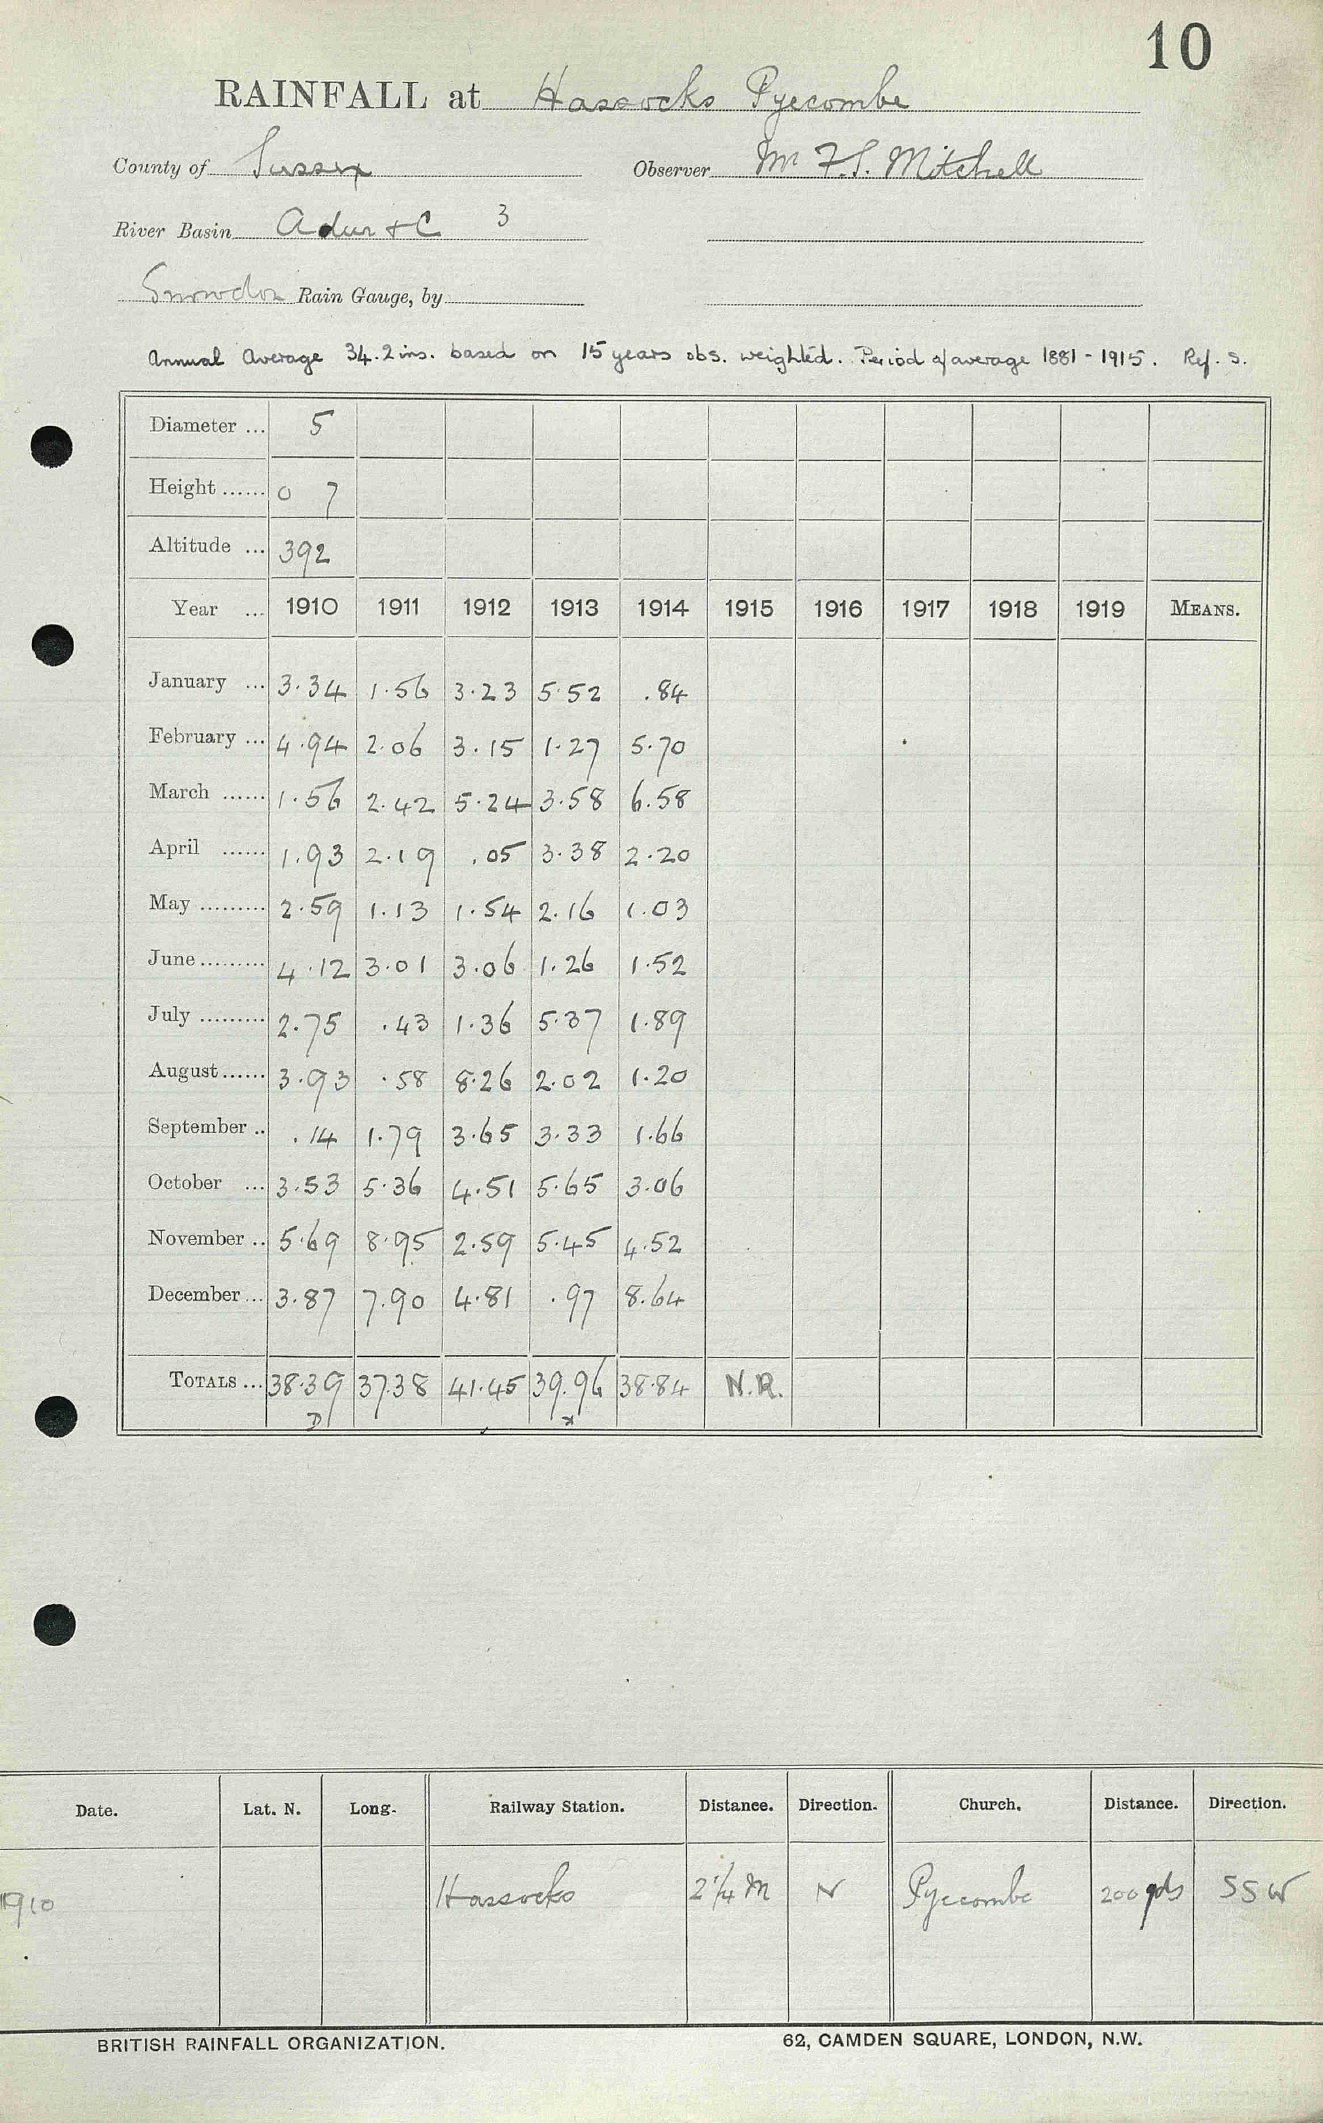 10
RAINFALL at Hassocks Pyecombe
County of Sussex Observer Mr F.S. Mitchell
River Basin Adur & C 3
Snowdon Rain Gauge, by
Annual Average 34.2 ins. based on 15 years obs. weighted. Period of average 1881 - 1915. Ref. S.
Diameter ... 5
Height ...... 0 7
Altitude ... 392
Year ... 1910 1911 1912 1913 1914 1915 1916 1917 1918 1919 MEANS.
January ... 3.34 1.56 3.23 5.52 .84
February ... 4.94 2.06 3.15 1.27 5.70
March ...... 1.56 2.42 5.24 3.58 6.58
April ...... 1.93 2.19 .05 3.38 2.20
May ......... 2.59 1.13 1.54 2.16 1.03
June ......... 4.12 3.01 3.06 1.26 1.52
July ......... 2.75 .43 1.36 5.37 1.89
August ...... 3.93 .58 8.26 2.02 1.20
September .. .14 1.79 3.65 3.33 1.66
October ... 3.53 5.36 4.51 5.65 3.06
November .. 5.69 8.95 2.59 5.45 4.52
December ... 3.87 7.90 4.81 .97 8.64
TOTALS ... 38.39 37.38 41.45 39.96 38.84 N.R.
Date. Lat. N. Long. Railway Station. Distance. Direction. Church. Distance. Direction.
1910 Hassocks 2¼ M N Pyecombe 200 yds SSW
BRITISH RAINFALL ORGANIZATION. 62, CAMDEN SQUARE, LONDON, N.W.